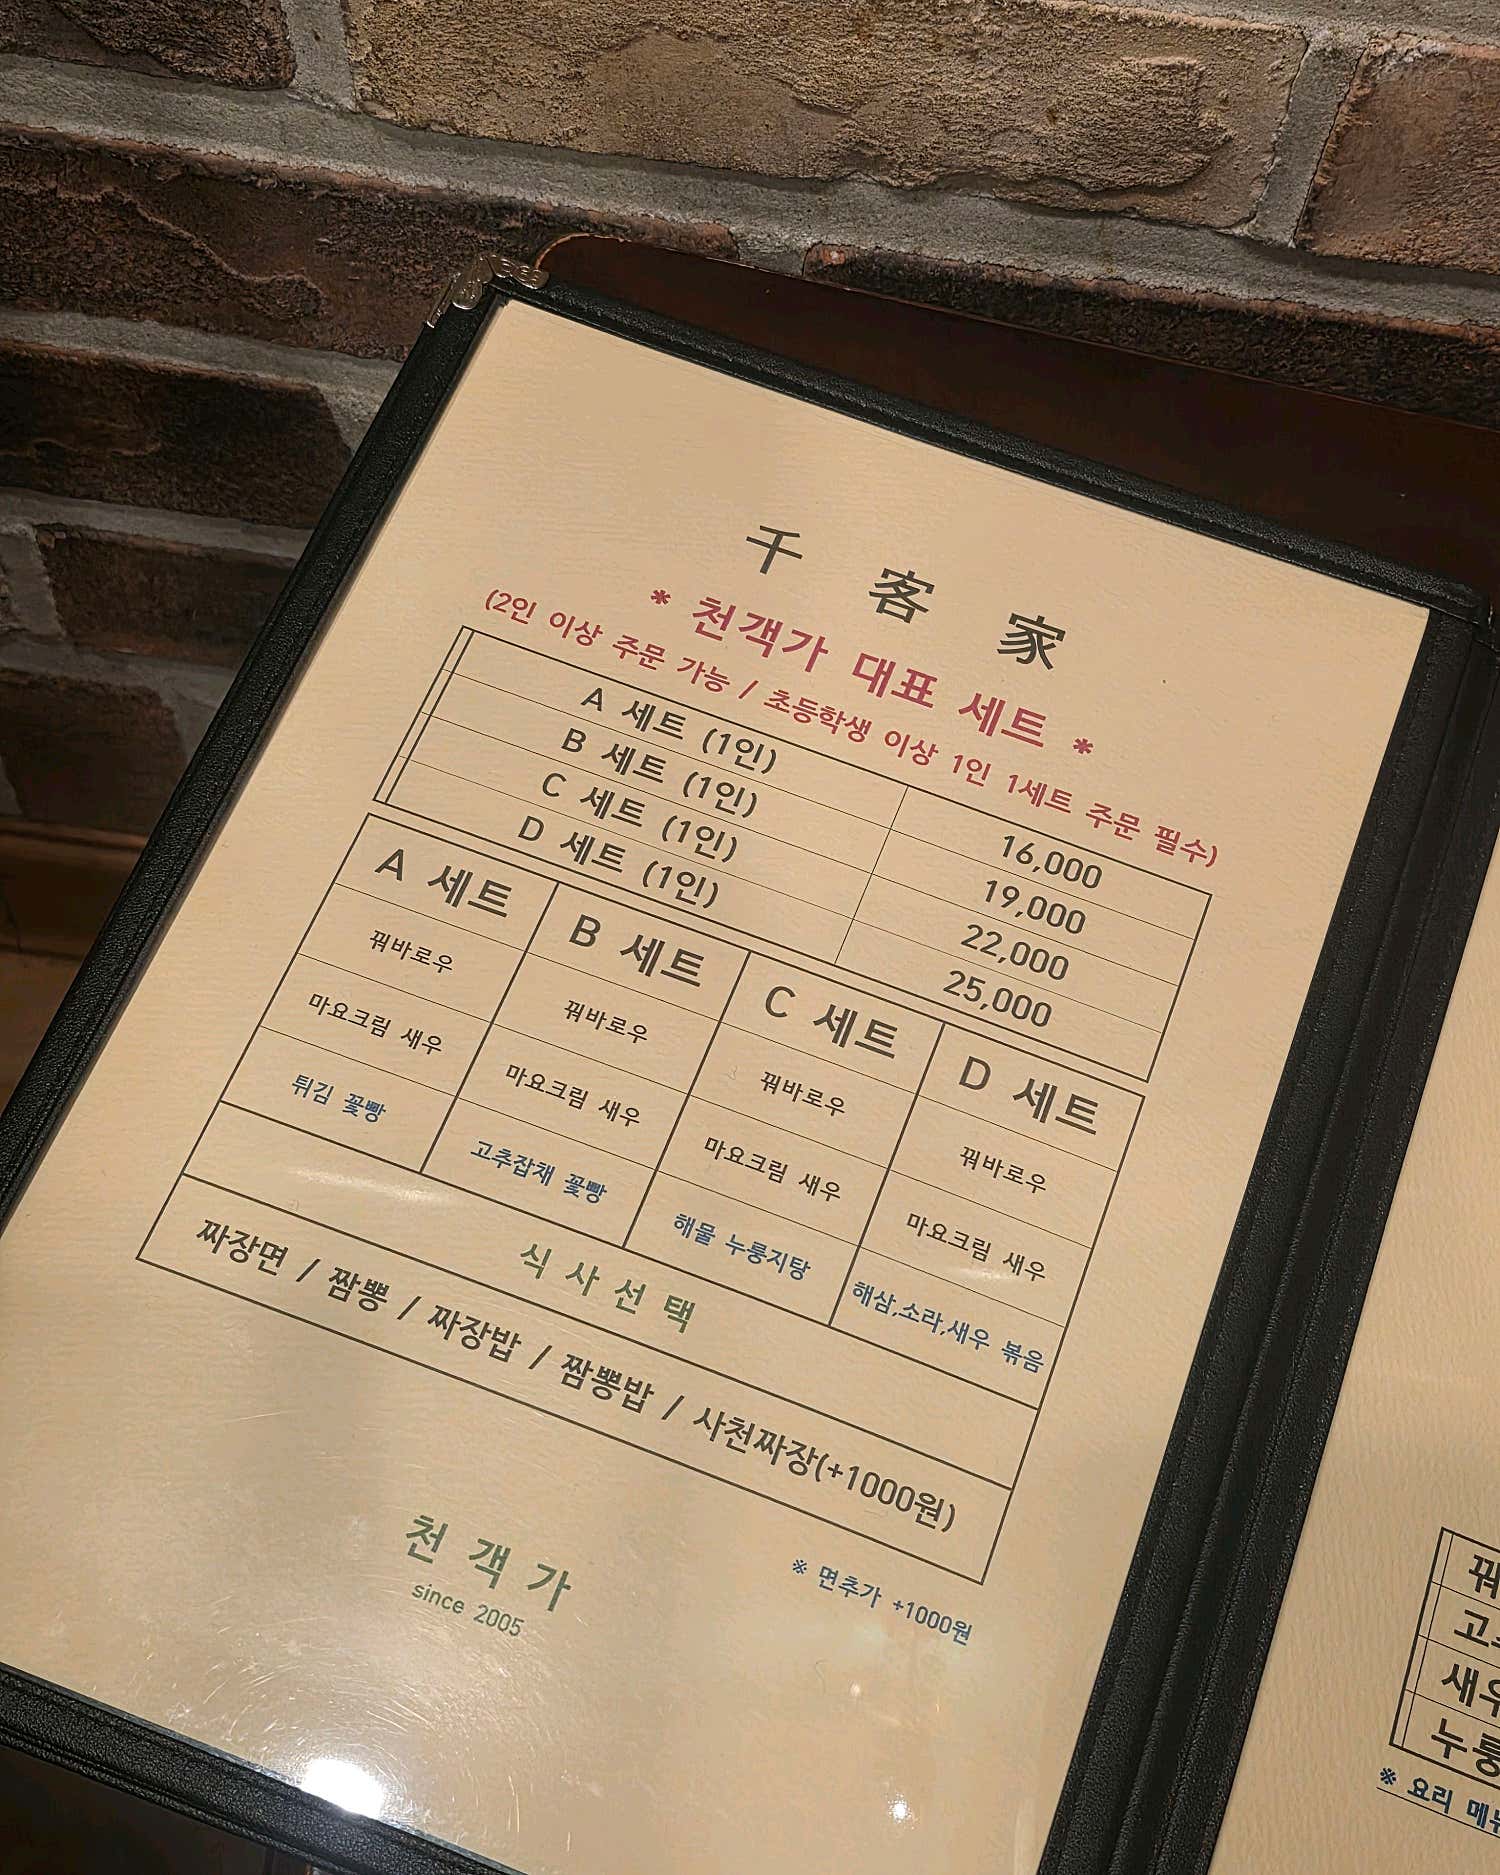 千 客 家
* 천객가 대표 세트 *
(2인 이상 주문 가능 / 초등학생 이상 1인 1세트 주문 필수)
A 세트 (1인) 16,000
B 세트 (1인) 19,000
C 세트 (1인) 22,000
D 세트 (1인) 25,000
A 세트 B 세트 C 세트 D 세트
꿔바로우 꿔바로우 꿔바로우 꿔바로우
마요크림 새우 마요크림 새우 마요크림 새우 마요크림 새우
튀김 꽃빵 고추잡채 꽃빵 해물 누룽지탕 해삼,소라,새우 볶음
식 사 선 택
짜장면 / 짬뽕 / 짜장밥 / 짬뽕밥 / 사천짜장(+1000원)
※ 면추가 +1000원
천 객 가
since 2005
꿔
고
새우
누룽
※ 요리 메뉴